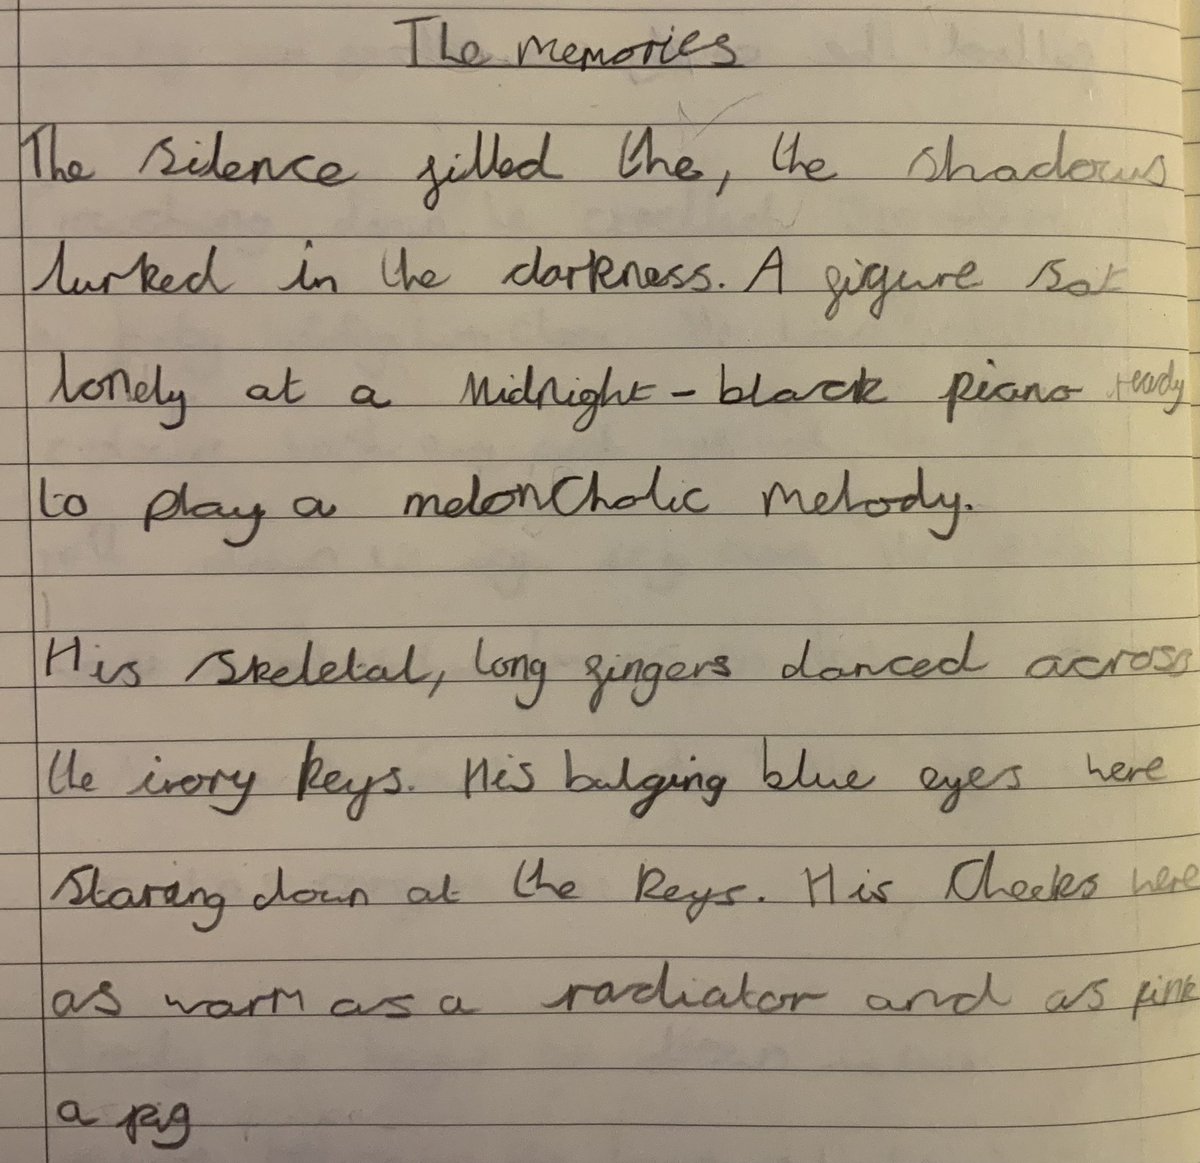 The memories
The silence filled the, the shadows
lurked in the darkness. A figure sat
lonely at a Midnight-black piano ready
to play a meloncholic melody.
His skeletal, long fingers danced across
the ivory keys. His bulging blue eyes here
Staring down at the keys. His Cheeks here
as warm as a radiator and as pink
a pig